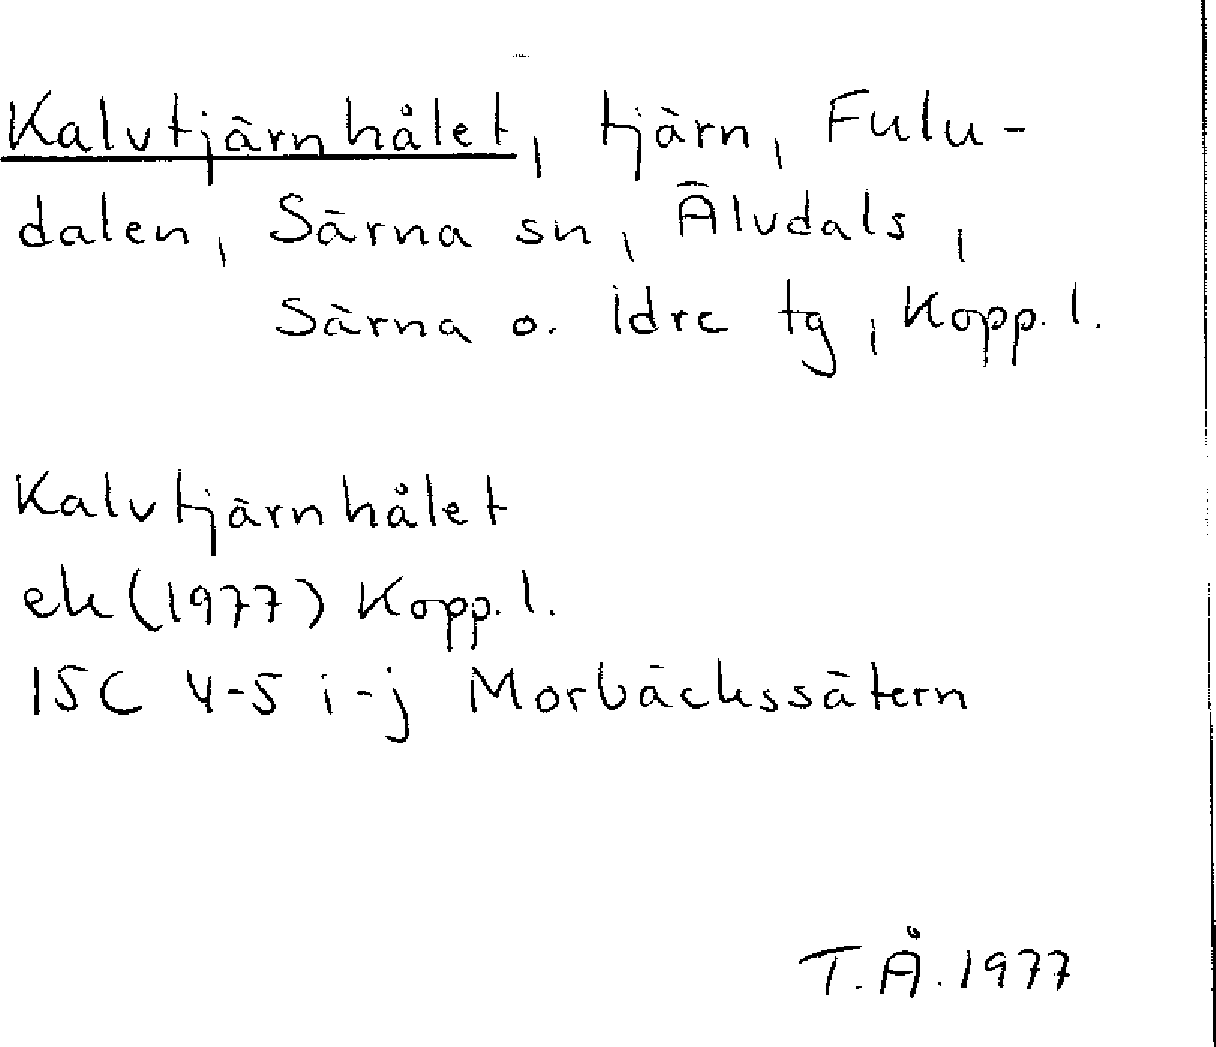 Kalvtjärnhålet, tjärn, Fulu-
dalen, Särna sn, Älvdals,
Särna o. Idre tg, Kopp. l.
Kalvtjärnhålet
ek (1977) Kopp. l.
15C 4-5 i-j Morbäckssätern
T.Å. 1977